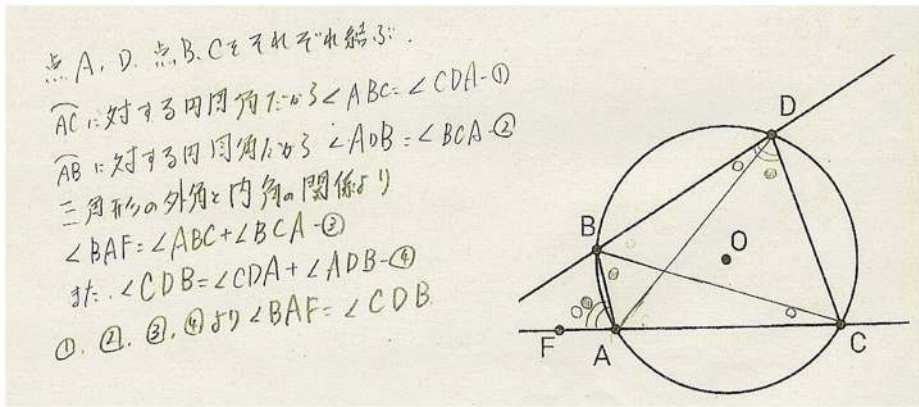 点A、D、点B、Cをそれぞれ結ぶ.
⌒ACに対する円周角だから∠ABC=∠CDA-①
⌒ABに対する円周角だから∠ADB=∠BCA-②
三角形の外角と内角の関係より
∠BAF=∠ABC+∠BCA-③
また.∠CDB=∠CDA+∠ADB-④
①、②、③、④より∠BAF=∠CDB
D
B
O
F
A
C